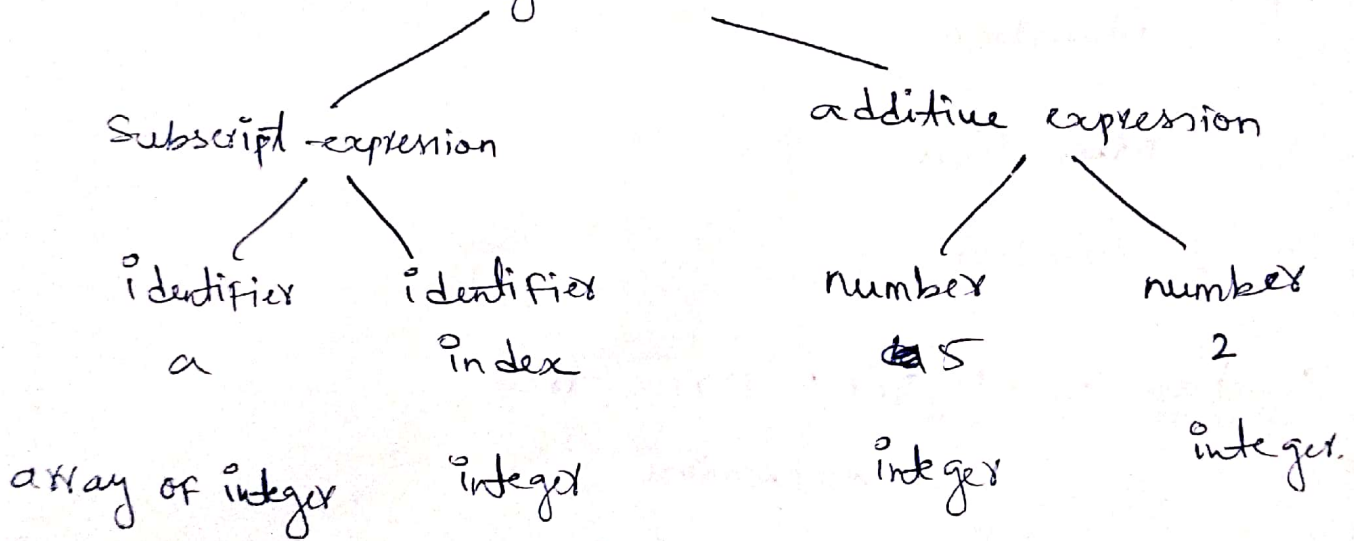 additive expression
Subscript-expression
identifier identifier number number
a index 5 2
array of integer integer integer integer.